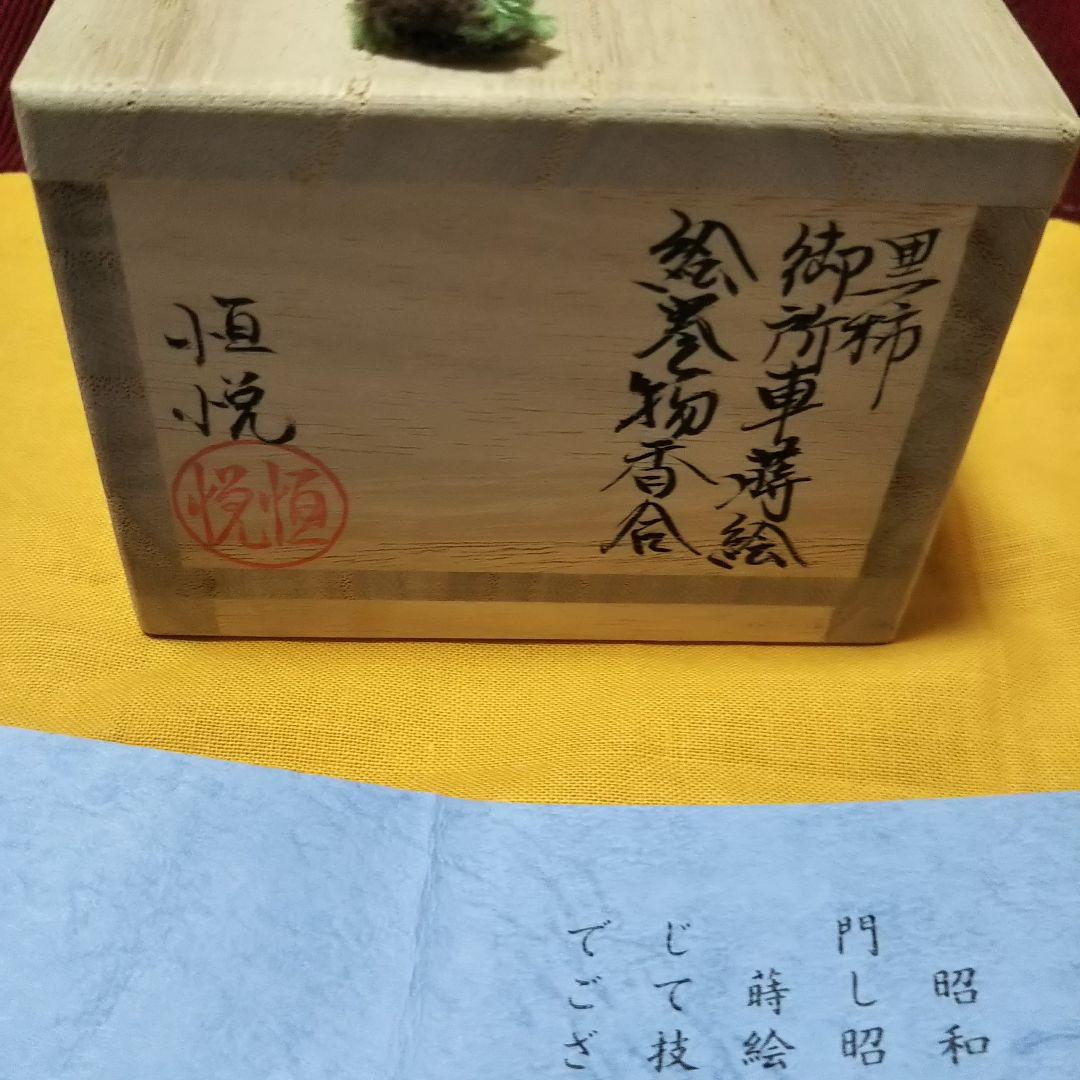 黒柿
御所車蒔絵
絵巻物香合
恒悦
恒悦
昭和
門し昭
蒔絵
じて技
でござ